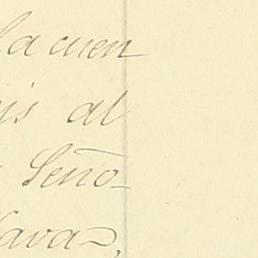 la cuen
is al
Seño-
Nava,